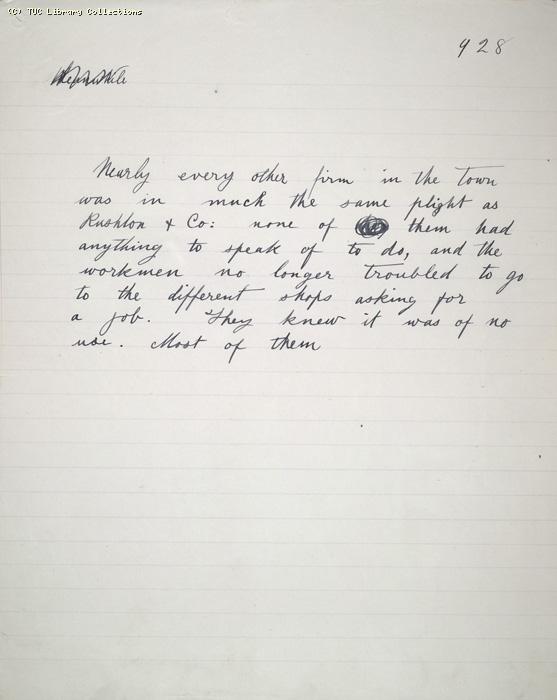 (C) TUC Library Collections
928
Nearly every other firm in the town
was in much the same plight as
Rushton & Co: none of them had
anything to speak of to do, and the
workmen no longer troubled to go
to the different shops asking for
a job. They knew it was of no
use. Most of them